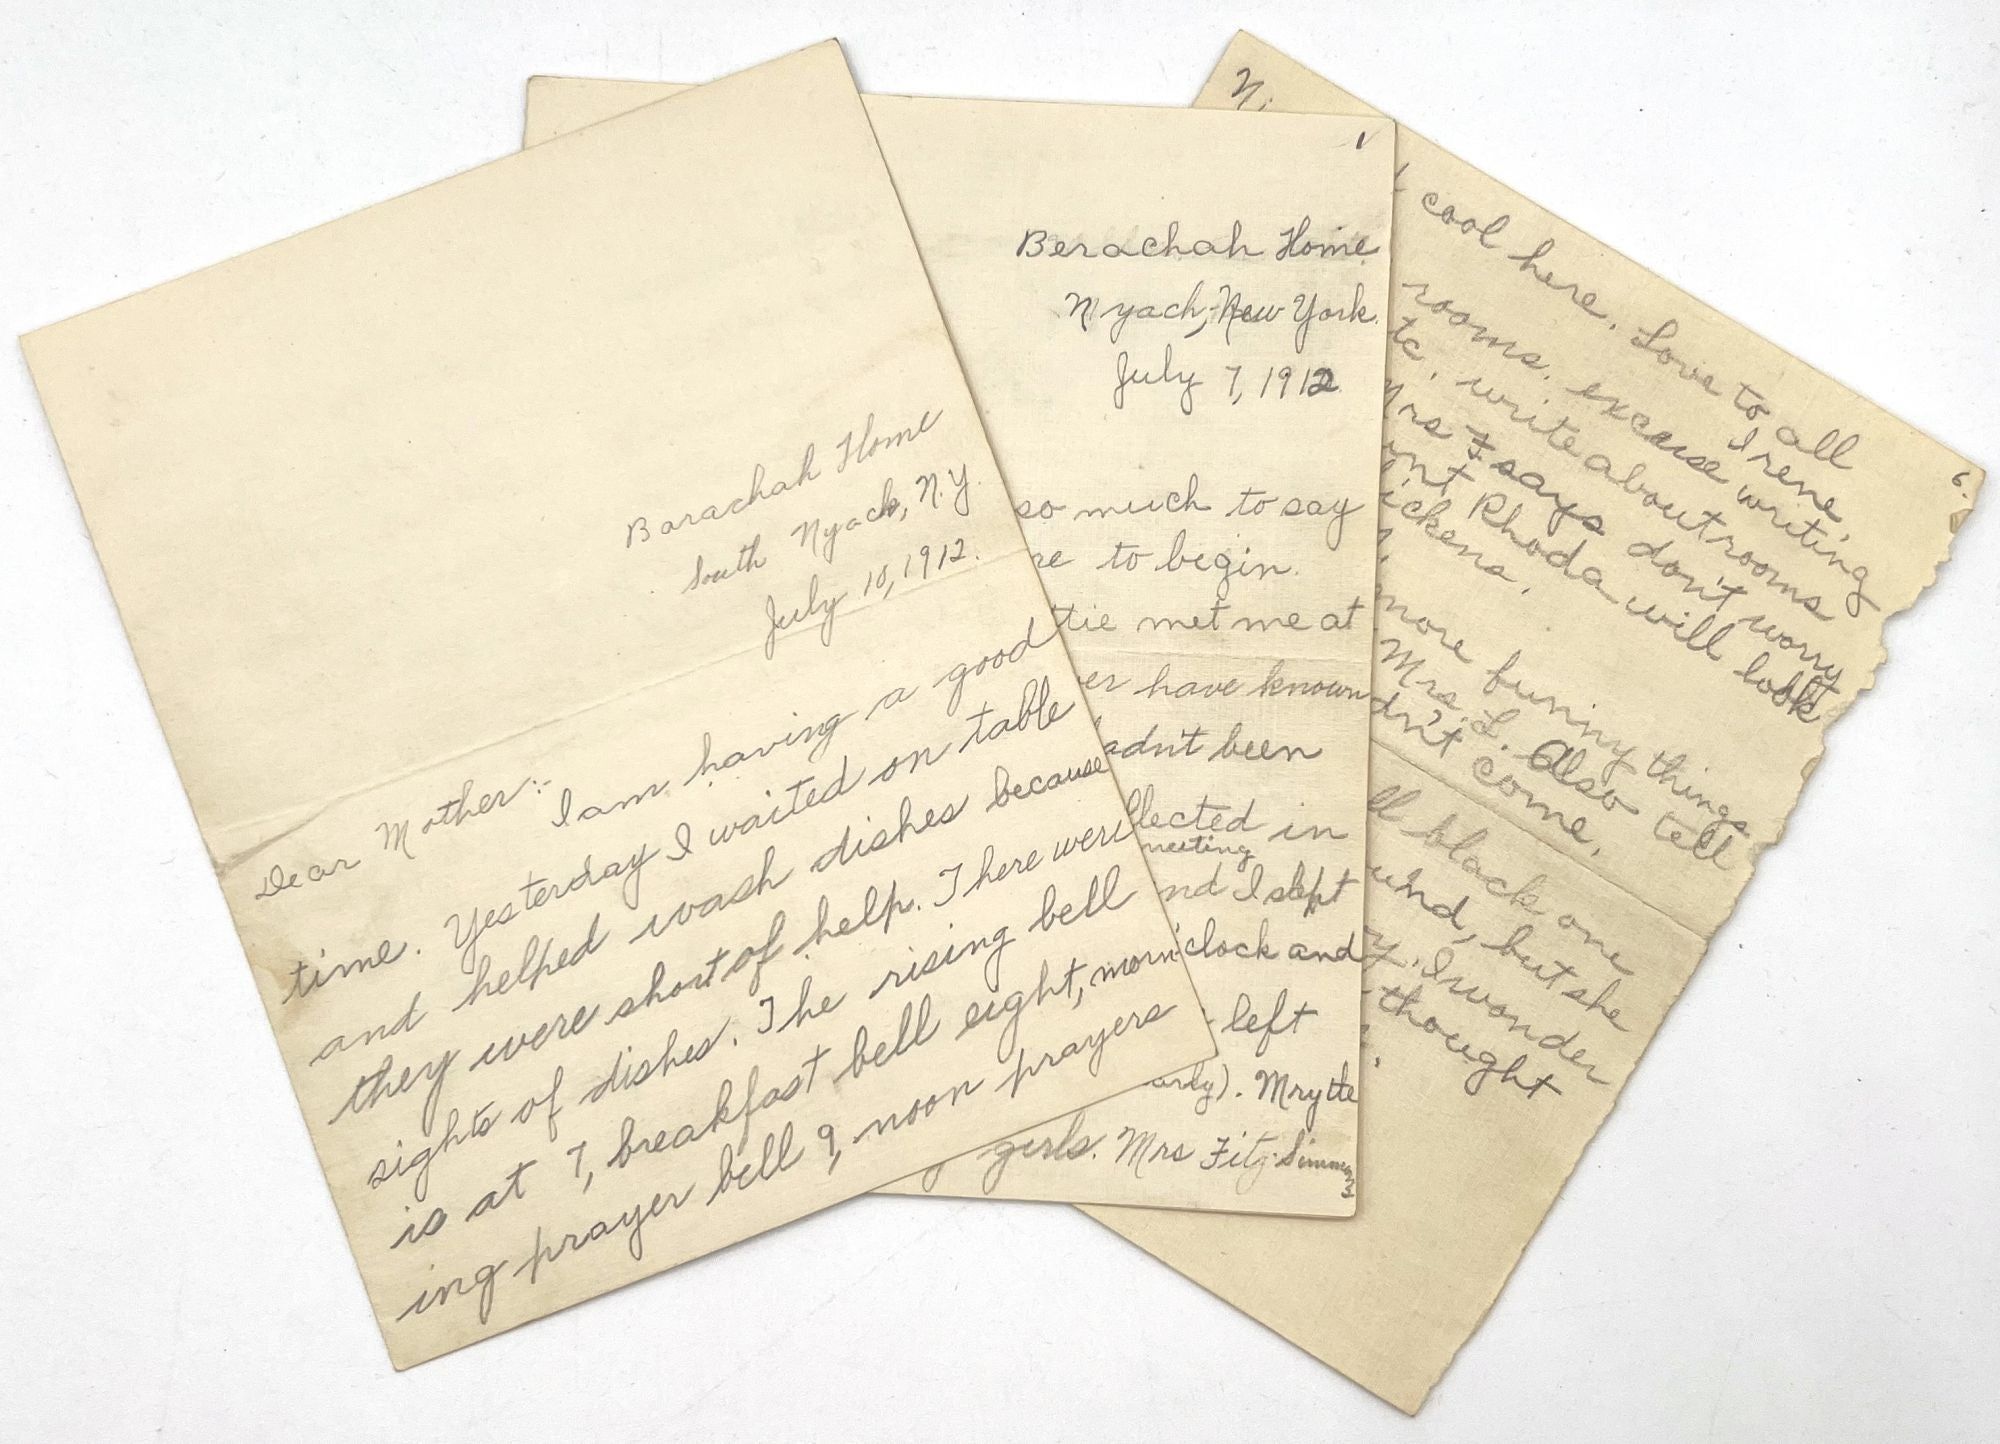 Barachah Home
South Nyack, N.Y.
July 10, 1912.
Dear Mother:
I am having a good
time. Yesterday I waited on table
and helped wash dishes because
they were short of help. There were
sights of dishes. The rising bell
is at 7, breakfast bell eight, morn-
ing prayer bell 9, noon prayers
1
Berachah Home
Nyach, New York.
July 7, 1912
so much to say
re to begin.
tie met me at
er have known
adn't been
llected in
meeting
nd I slept
clock and
left
arly). Mrytte
girls. Mrs Fitz-Simmons
6.
N.
cool here. Love to all
Irene
rooms. excuse writing
tc. write about rooms
Mrs F says don't worry
unt Rhoda will look
ickens.
more funny things
Mrs. L. Also tell
dn't come.
ll black one
und, but she
y. I wonder
thought